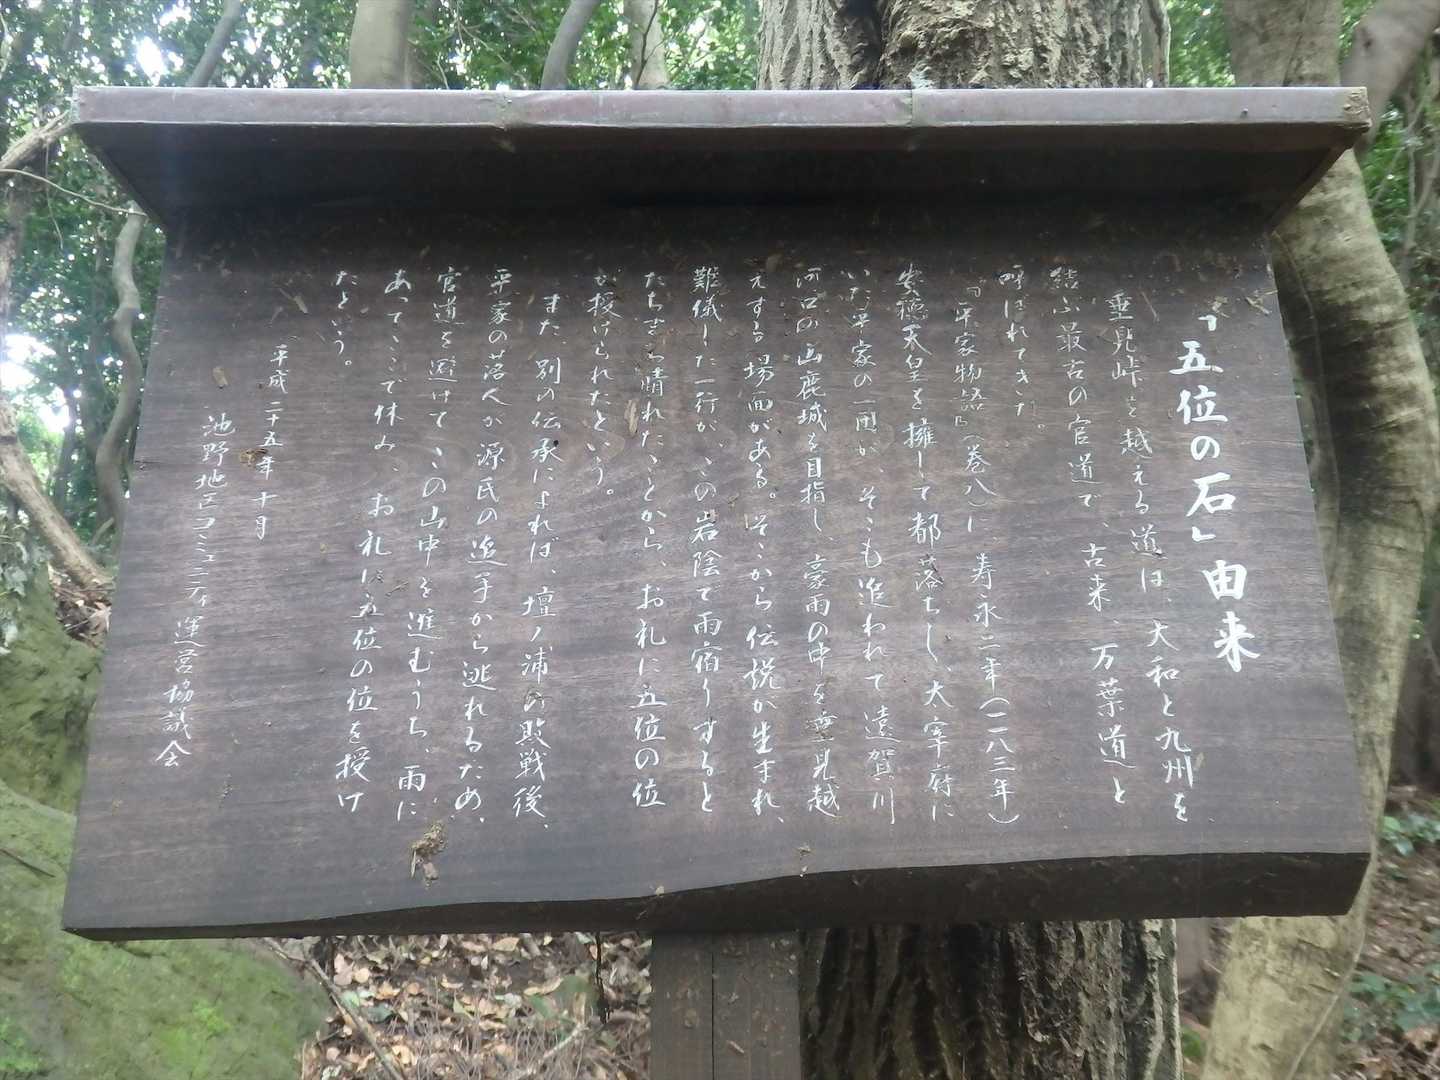 「五位の石」由来
垂見峠を越える道は、大和と九州を
結ぶ最古の官道で、古来、万葉道と
呼ばれてきた。
『平家物語』(巻八)に、寿永二年(一一八三年)
安徳天皇を擁して都落ちし、太宰府に
いた平家の一団が、そこも追われて遠賀川
河口の山鹿城を目指し、豪雨の中を垂見越
えする場面がある。そこから伝説が生まれ、
難儀した一行が、この岩陰で雨宿りすると
たちまち晴れたことから、お礼に五位の位
が授けられたという。
また、別の伝承によれば、壇ノ浦の敗戦後、
平家の落人が源氏の追手から逃れるため、
官道を避けてこの山中を進むうち、雨に
あってここで休み、お礼に五位の位を授け
たという。
平成二十五年十月
池野地区コミュニティ運営協議会